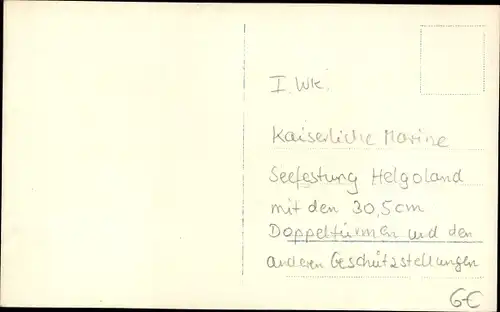 I. WK.
Kaiserliche Marine
Seefestung Helgoland
mit den 30,5cm
Doppeltürmen und den
anderen Geschützstellungen
6€